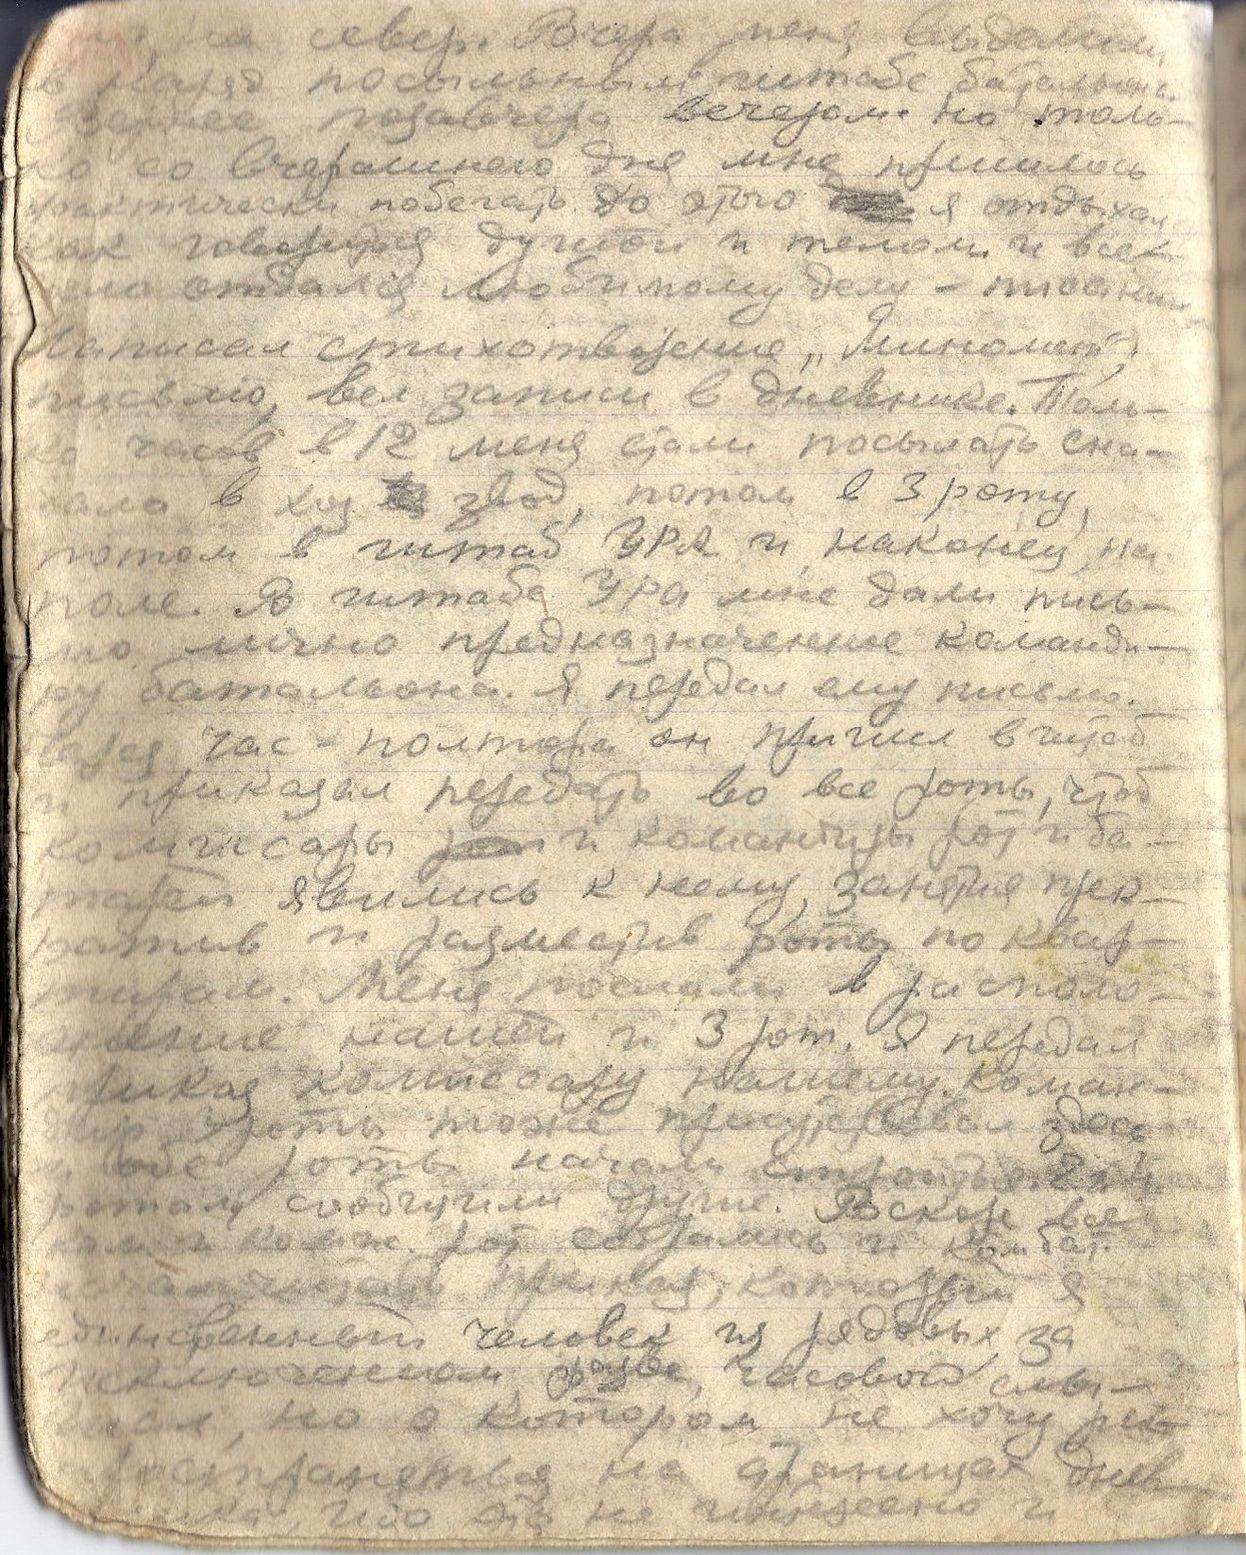 на север. Вчера меня выделили
в наряд посыльным штабе батальона.
позавчера вечером. но толь-
ко со вчерашнего дня мне пришлось
практически побегать. До этого я отдыхал
как говорится душой и телом. и всец
ело отдался любимому делу - писанию.
Написал стихотворение „Миномет",
письмо, вел записи в дневнике. Толь-
ко часов в 12 меня стали посылать сна-
чала в хоз взвод, потом в 3 роту,
потом в штаб УРА и, наконец, на
поле. В штабе УРа мне дали пись-
мо лично предназначенное команди-
ру батальона. Я передал ему письмо.
Через час-полтора он пришел в штаб
и приказал передать во все роты, чтоб
комиссары и командиры рот и ба-
тарей явились к нему, занятия прек-
ратив и разместив роты по квар-
тирам. Меня послали в располо-
жение нашей и 3 рот. Я передал
приказ комиссару нашему. Коман-
дир роты тоже присутствовал здесь
и обе роты начали строиться.
ротам сообщили другие. Вскоре все
ком и комис. рот собрались и комбат
зачитал приказ, который я
единственный человек из рядовых, за
исключением, разве, часовой слы-
шал, но о котором не хочу рас-
пространяться на страницах днев
ника, ибо это не нужно и